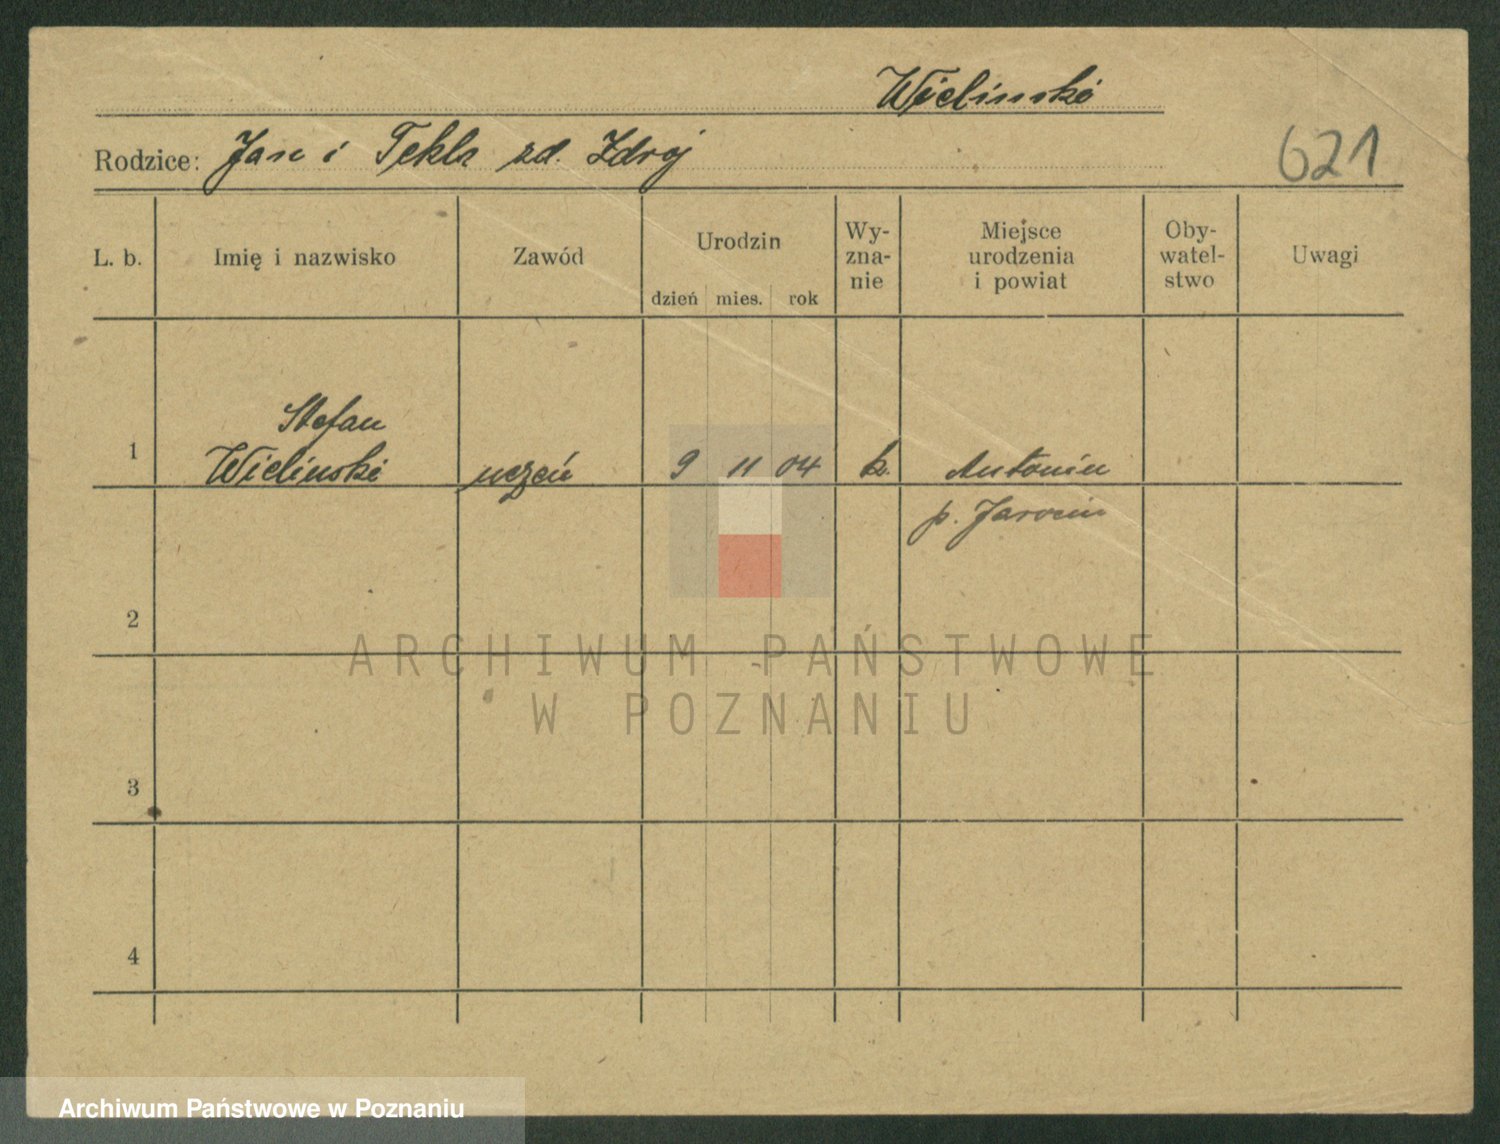 Wielinski
Rodzice: Jan i Tekla zd. Zdroj
621
L. b. Imię i nazwisko Zawód Urodzin Wy-zna-nie Miejsce urodzenia i powiat Oby-watel-stwo Uwagi
dzień mies. rok
Stefan
1 Wielinski uczeń 9 11 04 k. Antonin
p. Jarocin
2
ARCHIWUM PAŃSTWOWE
W POZNANIU
3
4
Archiwum Państwowe w Poznaniu